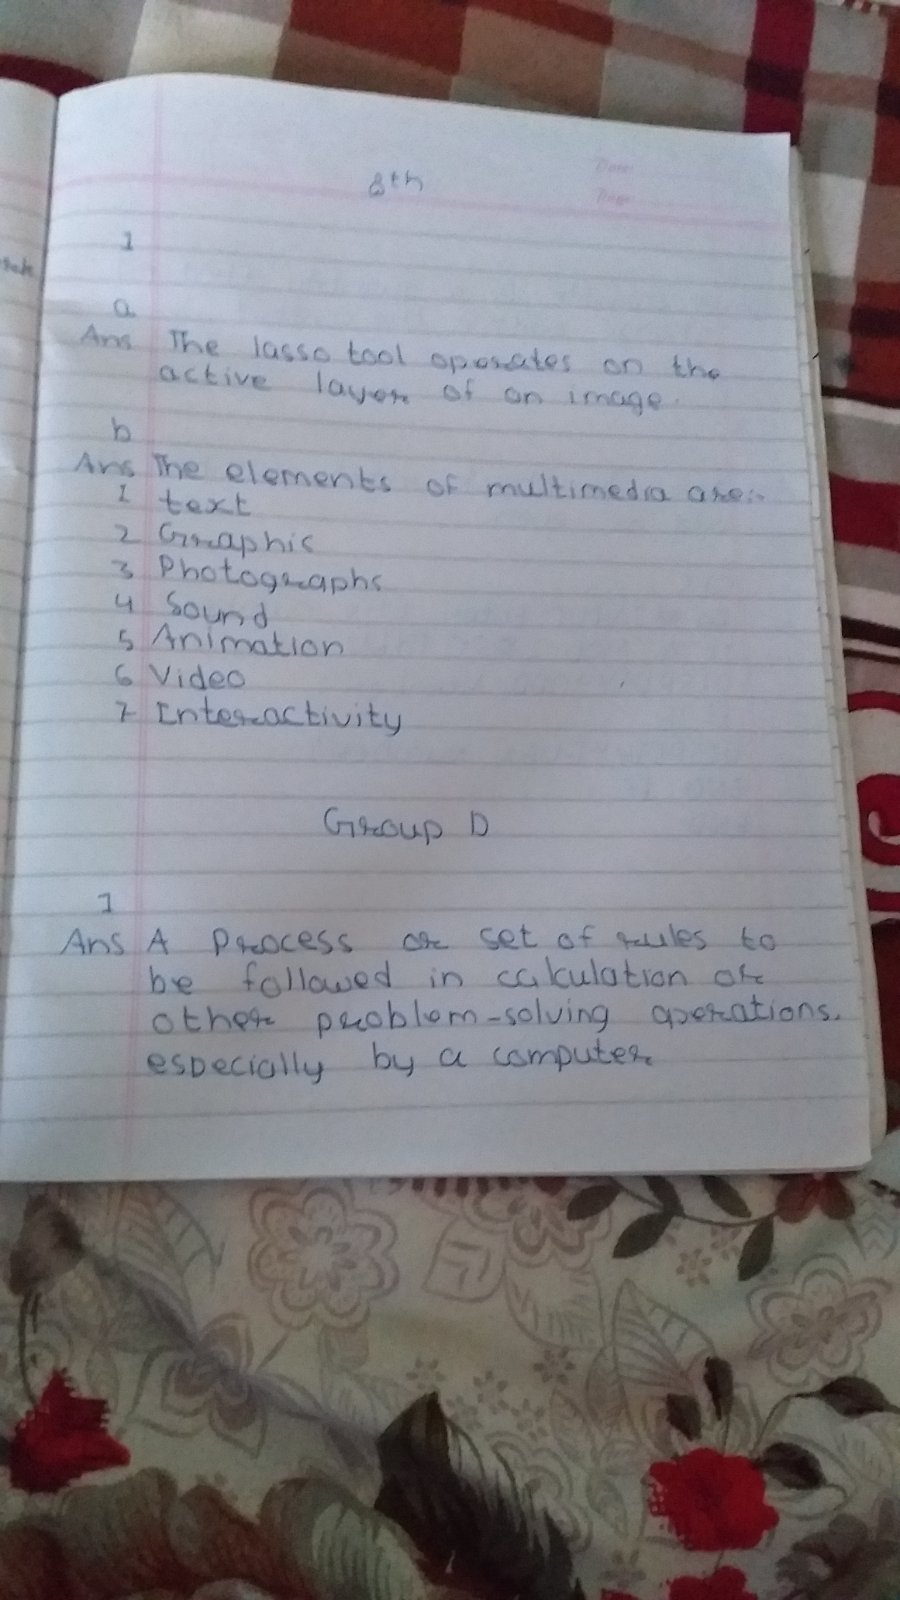 8th
1
a
Ans The lasso tool operates on the
active layer of an image.
b
Ans The elements of multimedia are:-
1 text
2 Graphic
3 Photographs
4 Sound
5 Animation
6 Video
7 Interactivity
Group D
1
Ans A Process or set of rules to
be followed in calculation or
other problem-solving operations.
especially by a computer